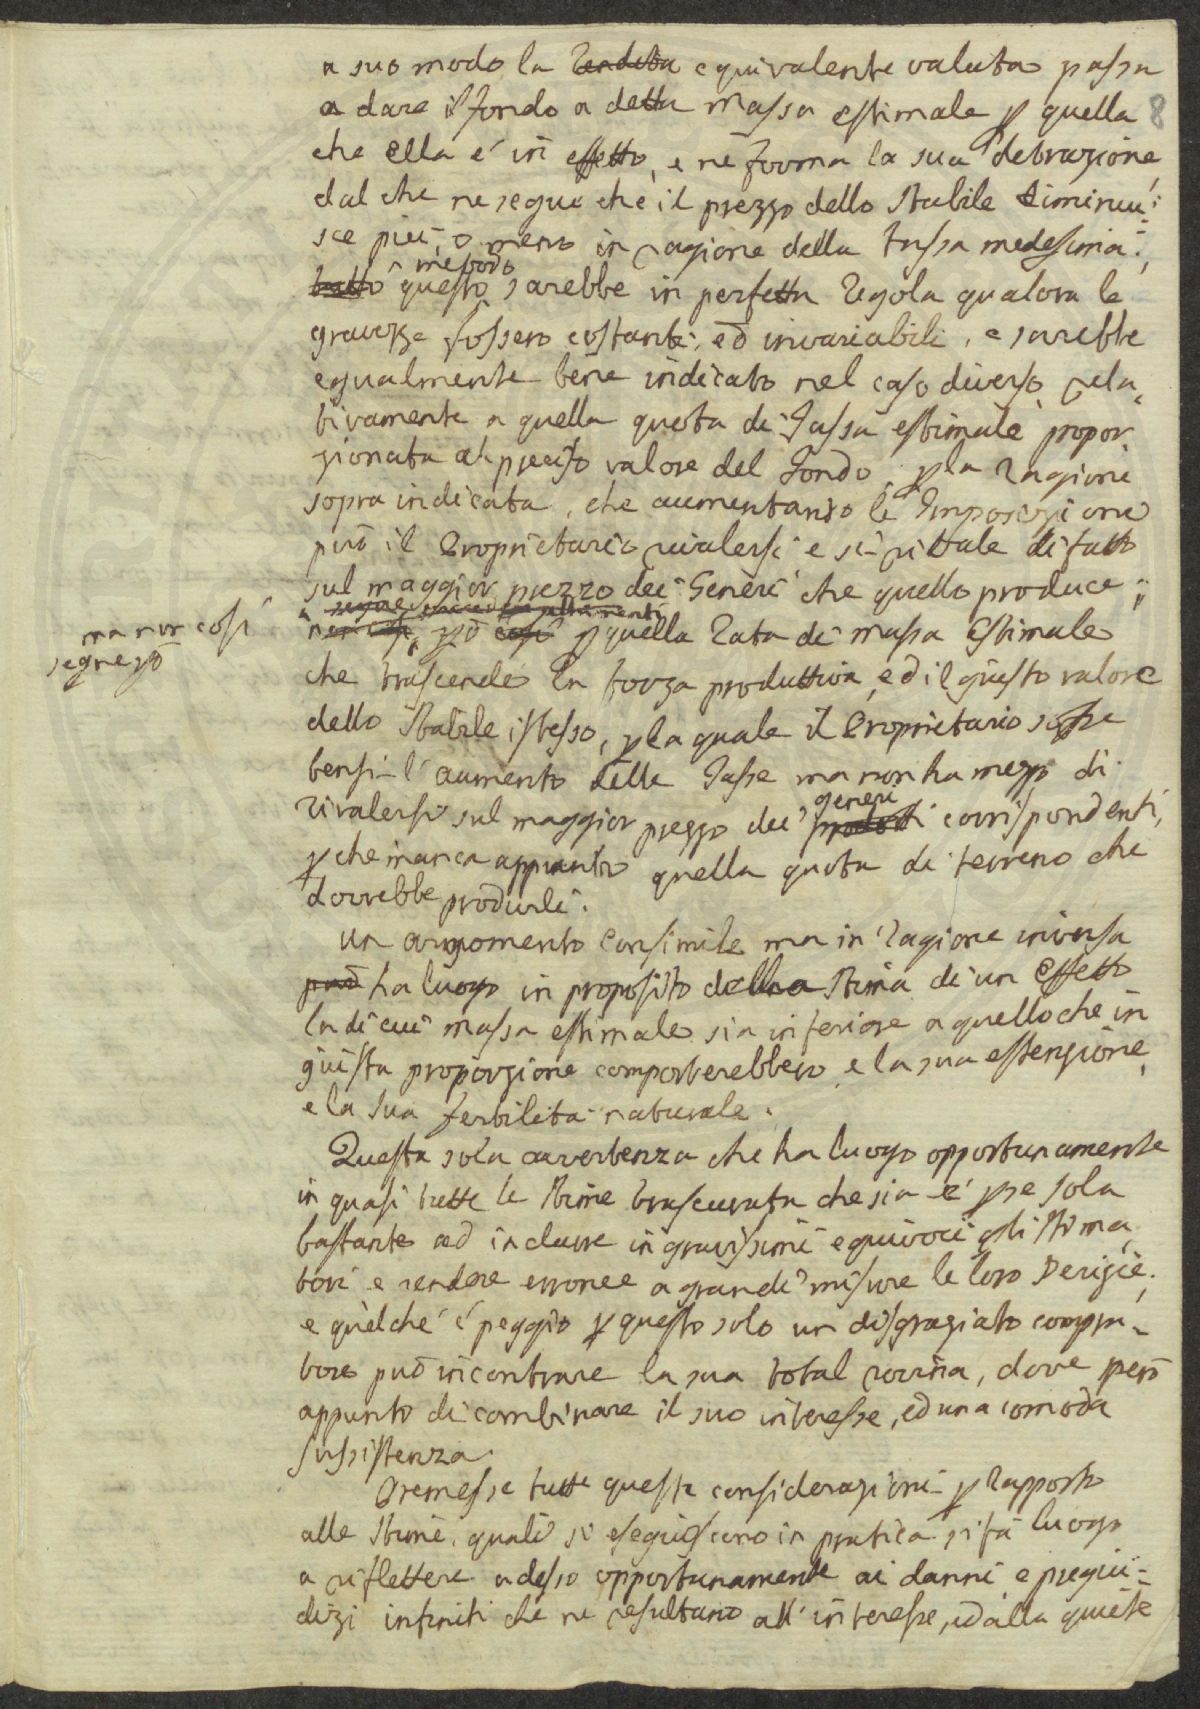 a suo modo la Rendita equivalente valuta passa
a dare il fondo a detta Massa estimale p quella 8
che ella é in effetto, e ne forma la sua detrazione,
dal che ne segue che il prezzo dello Stabile diminui:
sce piu, o meno in ragione della Tassa medesima:,
tutto questo metodo sarebbe in perfetta Regola qualora le
gravezze fossero costanti, ed invariabili, e sarebbe
egualmente bene indicato nel caso diverso rela,
tivamente a quella quota di Tassa estimale propor,
zionata al preciso valore del fondo, p la ragione
sopra indicata, che aumentando le Imposizioni
può il Proprietario rivalersi e si rivale di fatto
sul maggior prezzo dei Generi che quello produce;
ma non così
segue pō
non così, pō così p quella Rata di massa Estimale
che trascende la forza produttiva, ed il giusto valore
dello Stabile istesso, p la quale il Proprietario soffre
bensi l'aumento delle Tasse ma non ha mezzo di
rivalersi sul maggior prezzo dei prodotti generi corrispondenti,
p che manca appunto quella quota di terreno che
dovrebbe produrli.
Un argomento consimile ma in ragione inversa
può ha luogo in proposito della Stima di un Effetto
la di cui massa estimale sia inferiore a quello che in
giusta proporzione comporterebbero e la sua estenzione,
e la sua fertilità naturale.
Questa sola avvertenza che ha luogo opportunamente
in quasi tutte le Stime trascurata che sia é p se sola
bastante ad indurre in gravissimi equivoci gli Stima,
tori e rendere erronee a grandi misure le loro Perizie,
e quelche é peggio p questo solo un disgraziato compra=
tore può incontrare la sua total rovina, dove però
appunto di combinare il suo interesse, ed una comoda
sussistenza.
Premesse tutte queste considerazioni p rapporto
alle Stime, quali si eseguiscono in pratica si fà luogo
a riflettere adesso opportunamente ai danni e pregiu=
dizi infiniti che ne resultano all'interesse, ed alla quiete